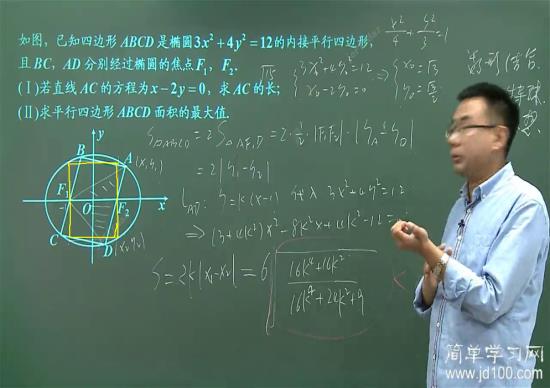 如图，已知四边形ABCD是椭圆3x²+4y²=12的内接平行四边形，
且BC，AD分别经过椭圆的焦点F₁，F₂.
(Ⅰ)若直线AC的方程为x-2y=0，求AC的长；
(Ⅱ)求平行四边形ABCD面积的最大值.
x²/4 + y²/3 = 1
√15
{3x₀²+4y₀²=12
x₀-2y₀=0
⇒ {x₀=√3
y₀=√3/2
S▱ABCD = 2S△AF₁D = 2·1/2·|F₁F₂|·|y_A-y_D|
= 2|y₁-y₂|
L_AD: y=k(x-1) 代入 3x²+4y²=12
⇒ (3+4k²)x²-8k²x+4k²-12=0
S=2k|x₁-x₂|=6√(16k⁴+16k²)/(16k⁴+24k²+9)
y
B
A
(x₁,y₁)
F₁
O
F₂
x
C
D
(x₂,y₂)
简单学习网
www.jd100.com